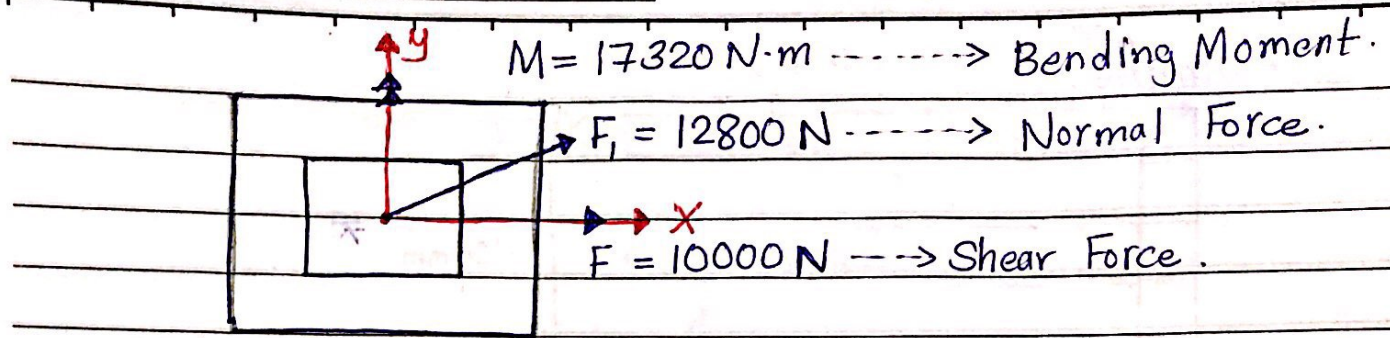 y
M = 17320 N·m -------> Bending Moment.
F₁ = 12800 N ------> Normal Force.
X
F = 10000 N ---> Shear Force.